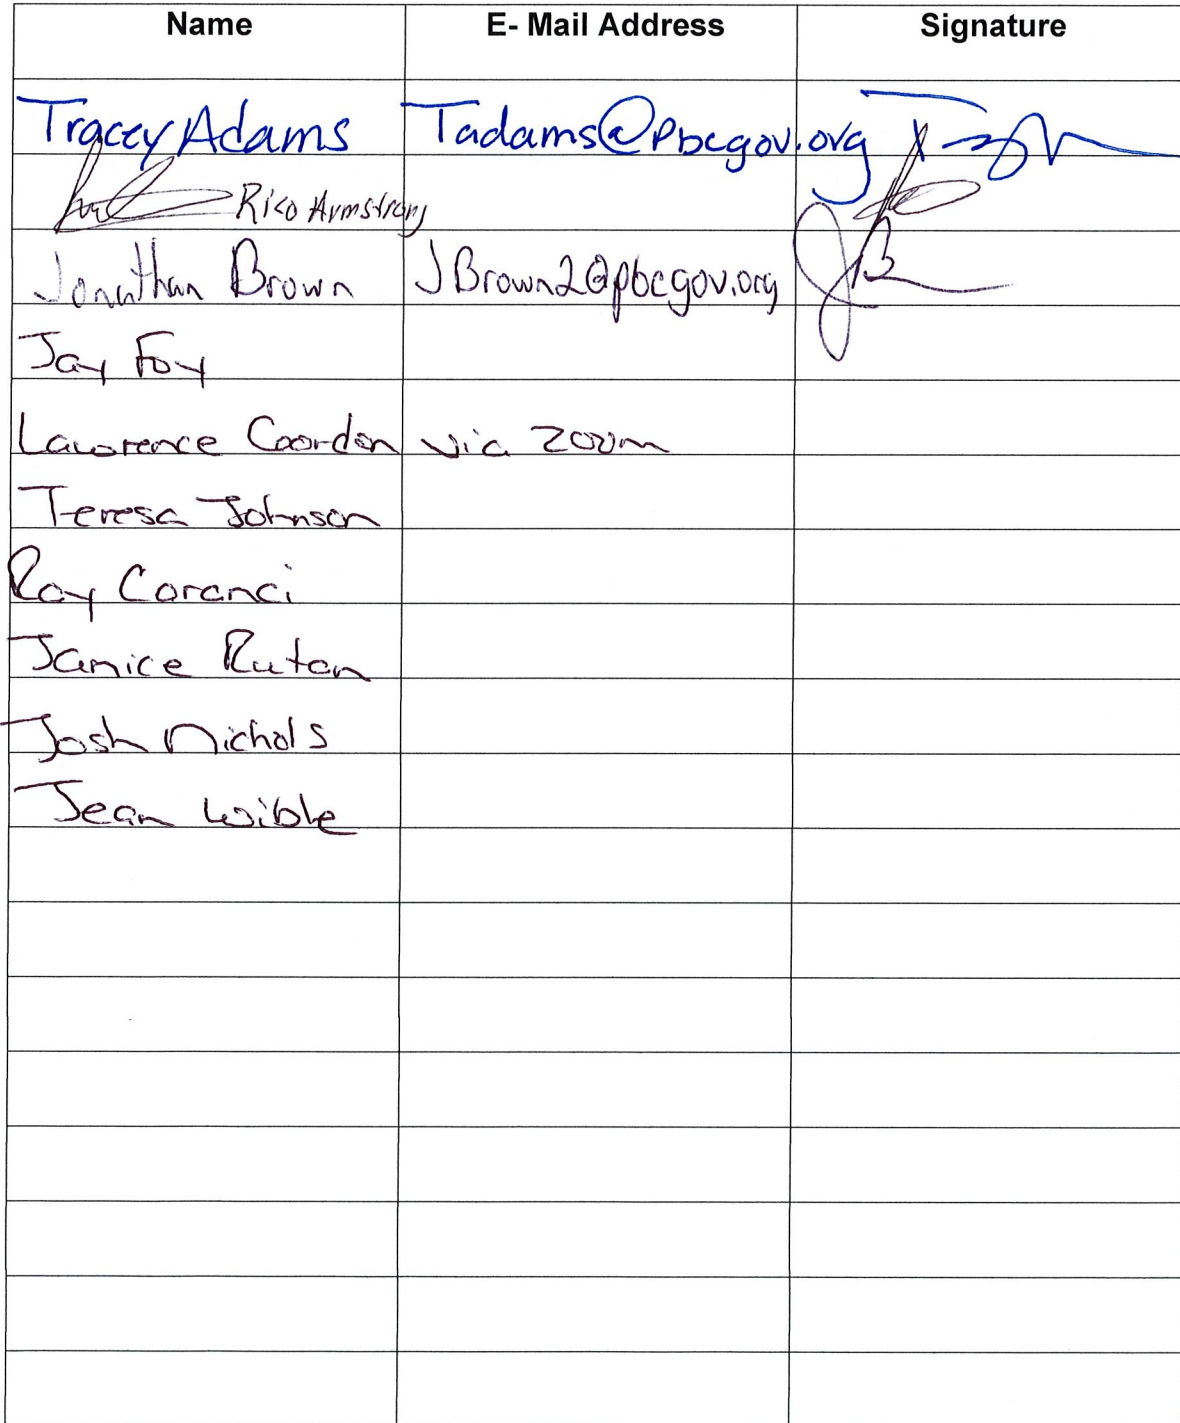 Name E- Mail Address Signature
Tracey Adams Tadams@pbcgov.org
Rico Armstrong
Jonathan Brown JBrown2@pbcgov.org
Jay Foy
Lawrence Gordon via Zoom
Teresa Johnson
Ray Coranci
Janice Rutan
Josh Nichols
Jean Wible